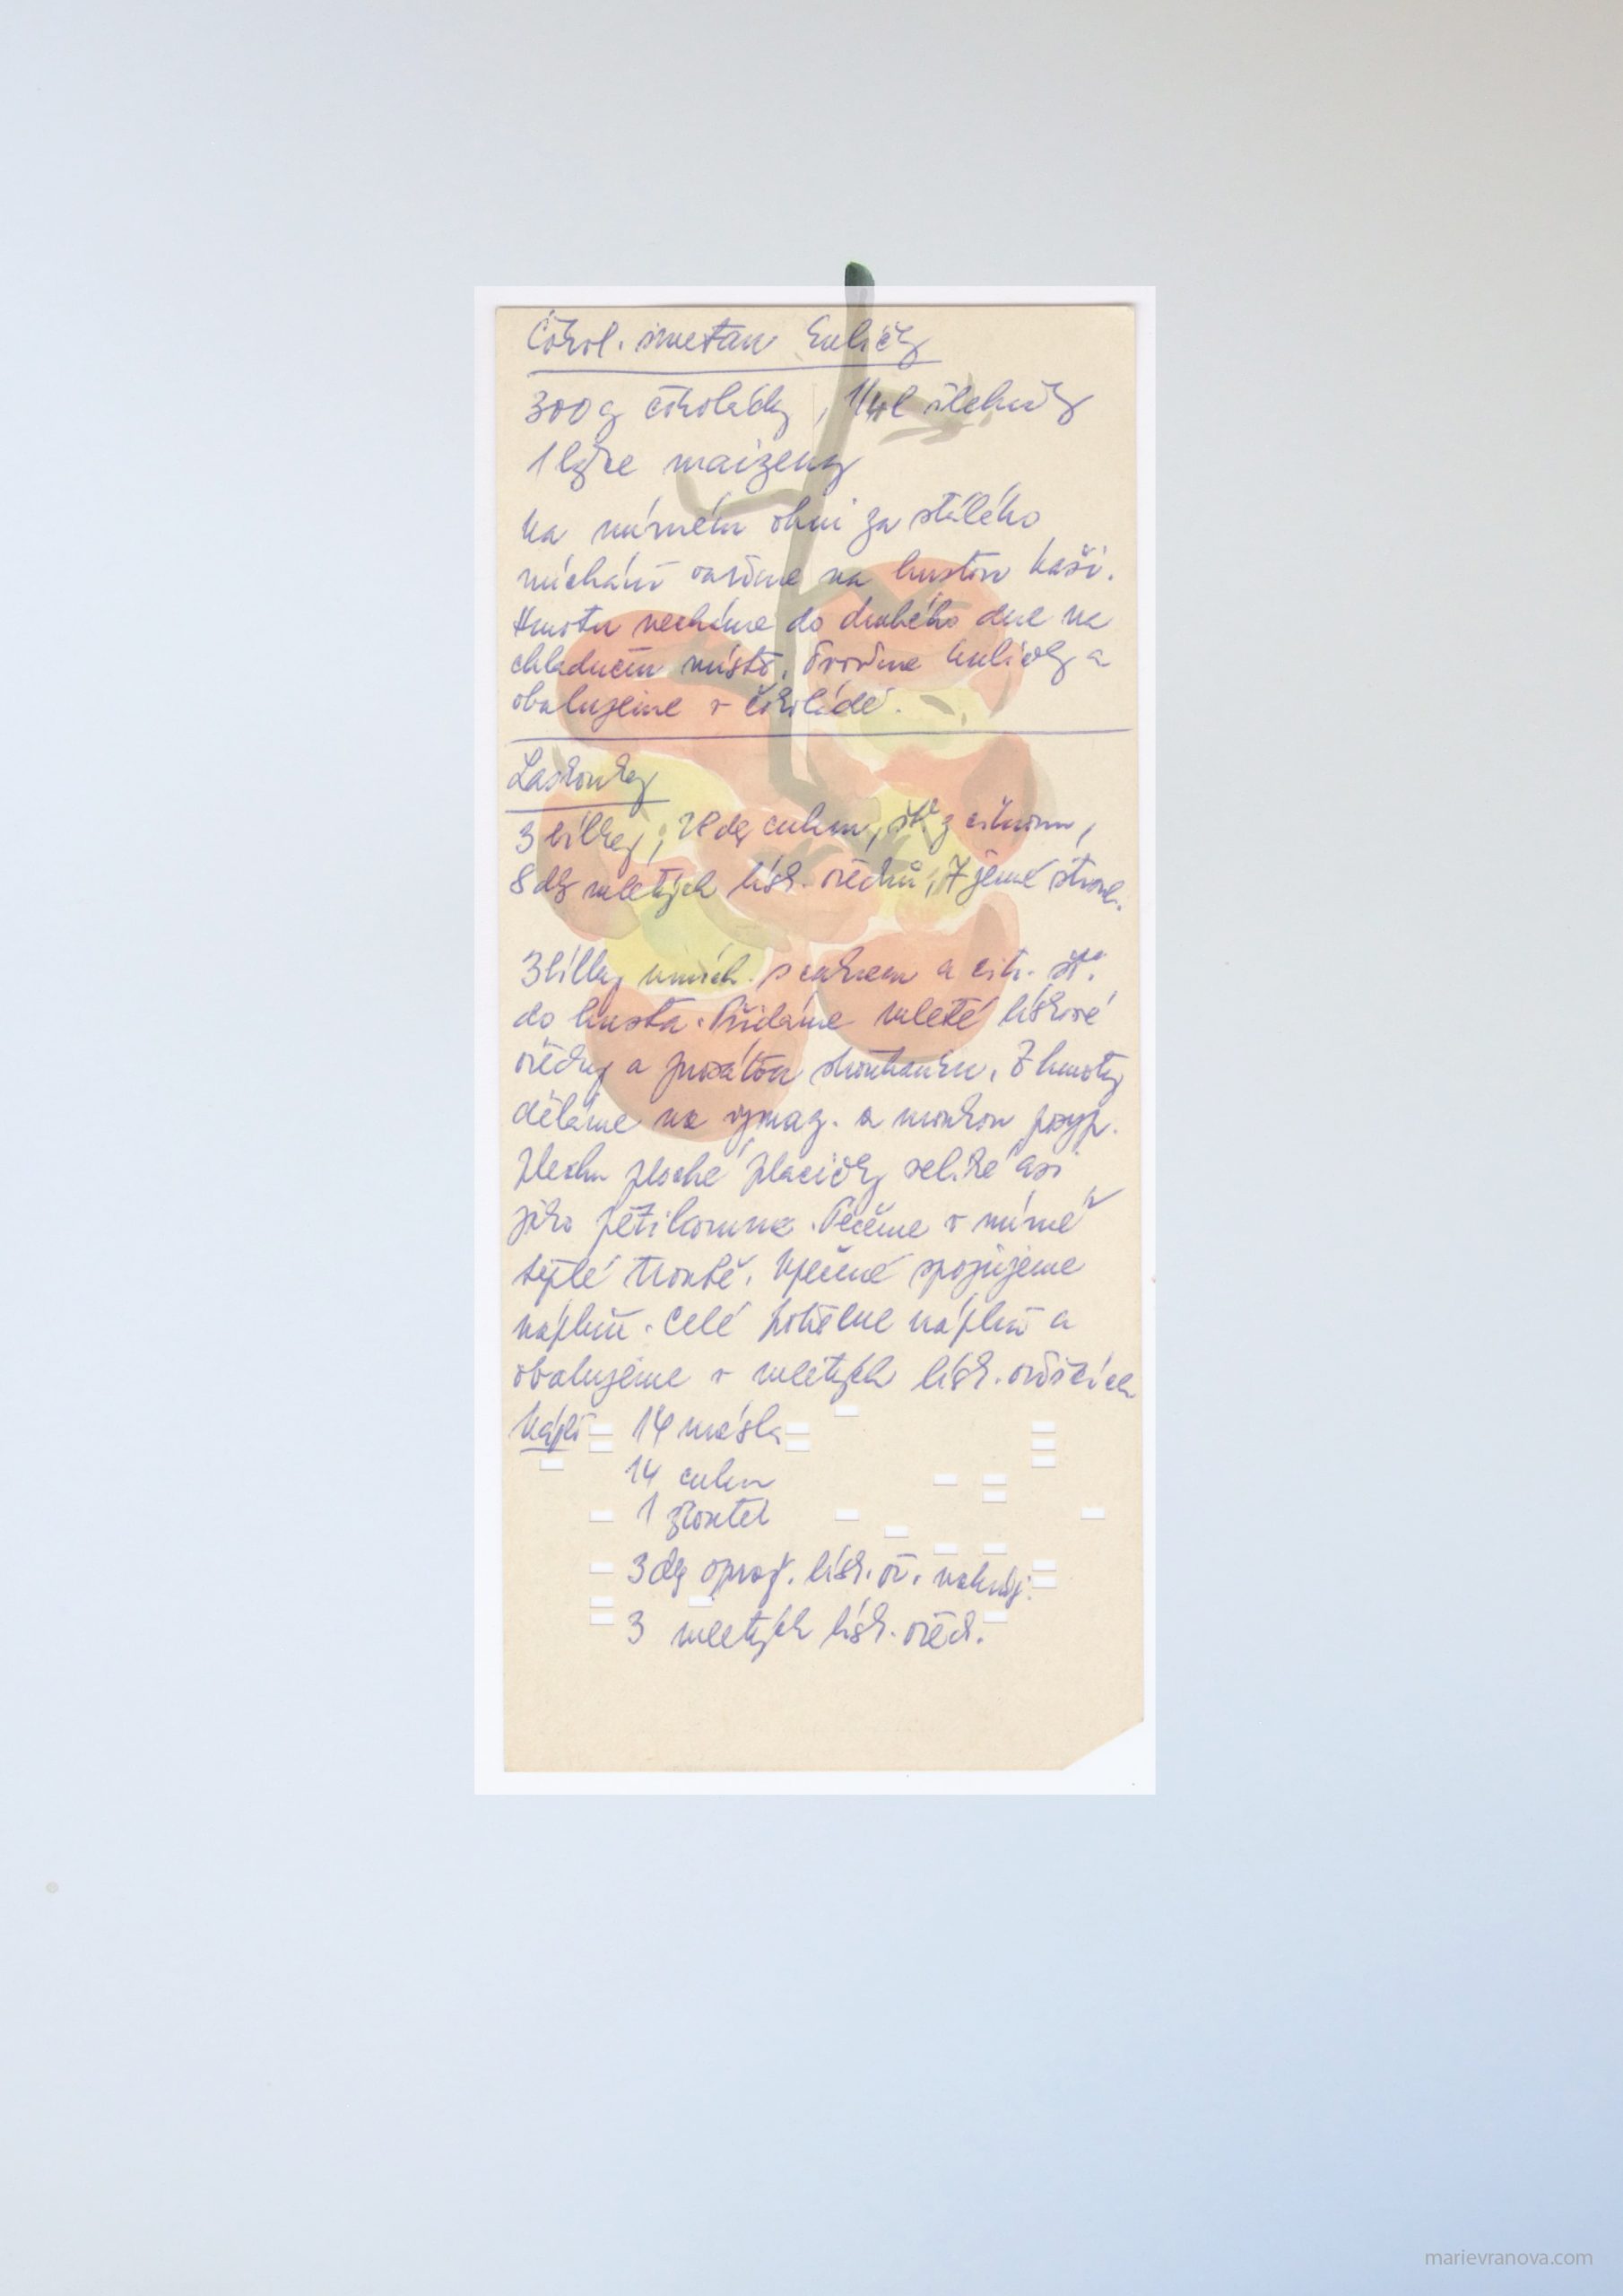 Čokol. smetan kuličky
300 g čokolády, 1/4 l šlehačky
1 lžíce maizeny
Na mírném ohni za stálého
míchání vaříme na hustou kaši.
Hmotu necháme do druhého dne na
chladném místě. Tvoříme kuličky a
obalujeme v čokoládě.
Laskonky
3 bílky, 28 dg cukru, šť. z citronu,
8 dg mletých lísk. oříšků, 7 jemné strouh.
3 bílky umích. s cukrem a citr. šť.
do husta. Přidáme mleté lískové
oříšky a prosátou strouhanku. Z hmoty
děláme na vymaz. a moukou posyp.
plechu ploché placičky veliké asi
jako pětikoruna. Pečeme v mírně
teplé troubě. Upečené spojujeme
náplní. Celé potřeme náplní a
obalujeme v mletých lísk. oříšcích
Náplň 14 másla
14 cukru
1 žloutek
3 dg opraž. lísk. oř.
3 mletých lísk. oříšk.
marievranova.com